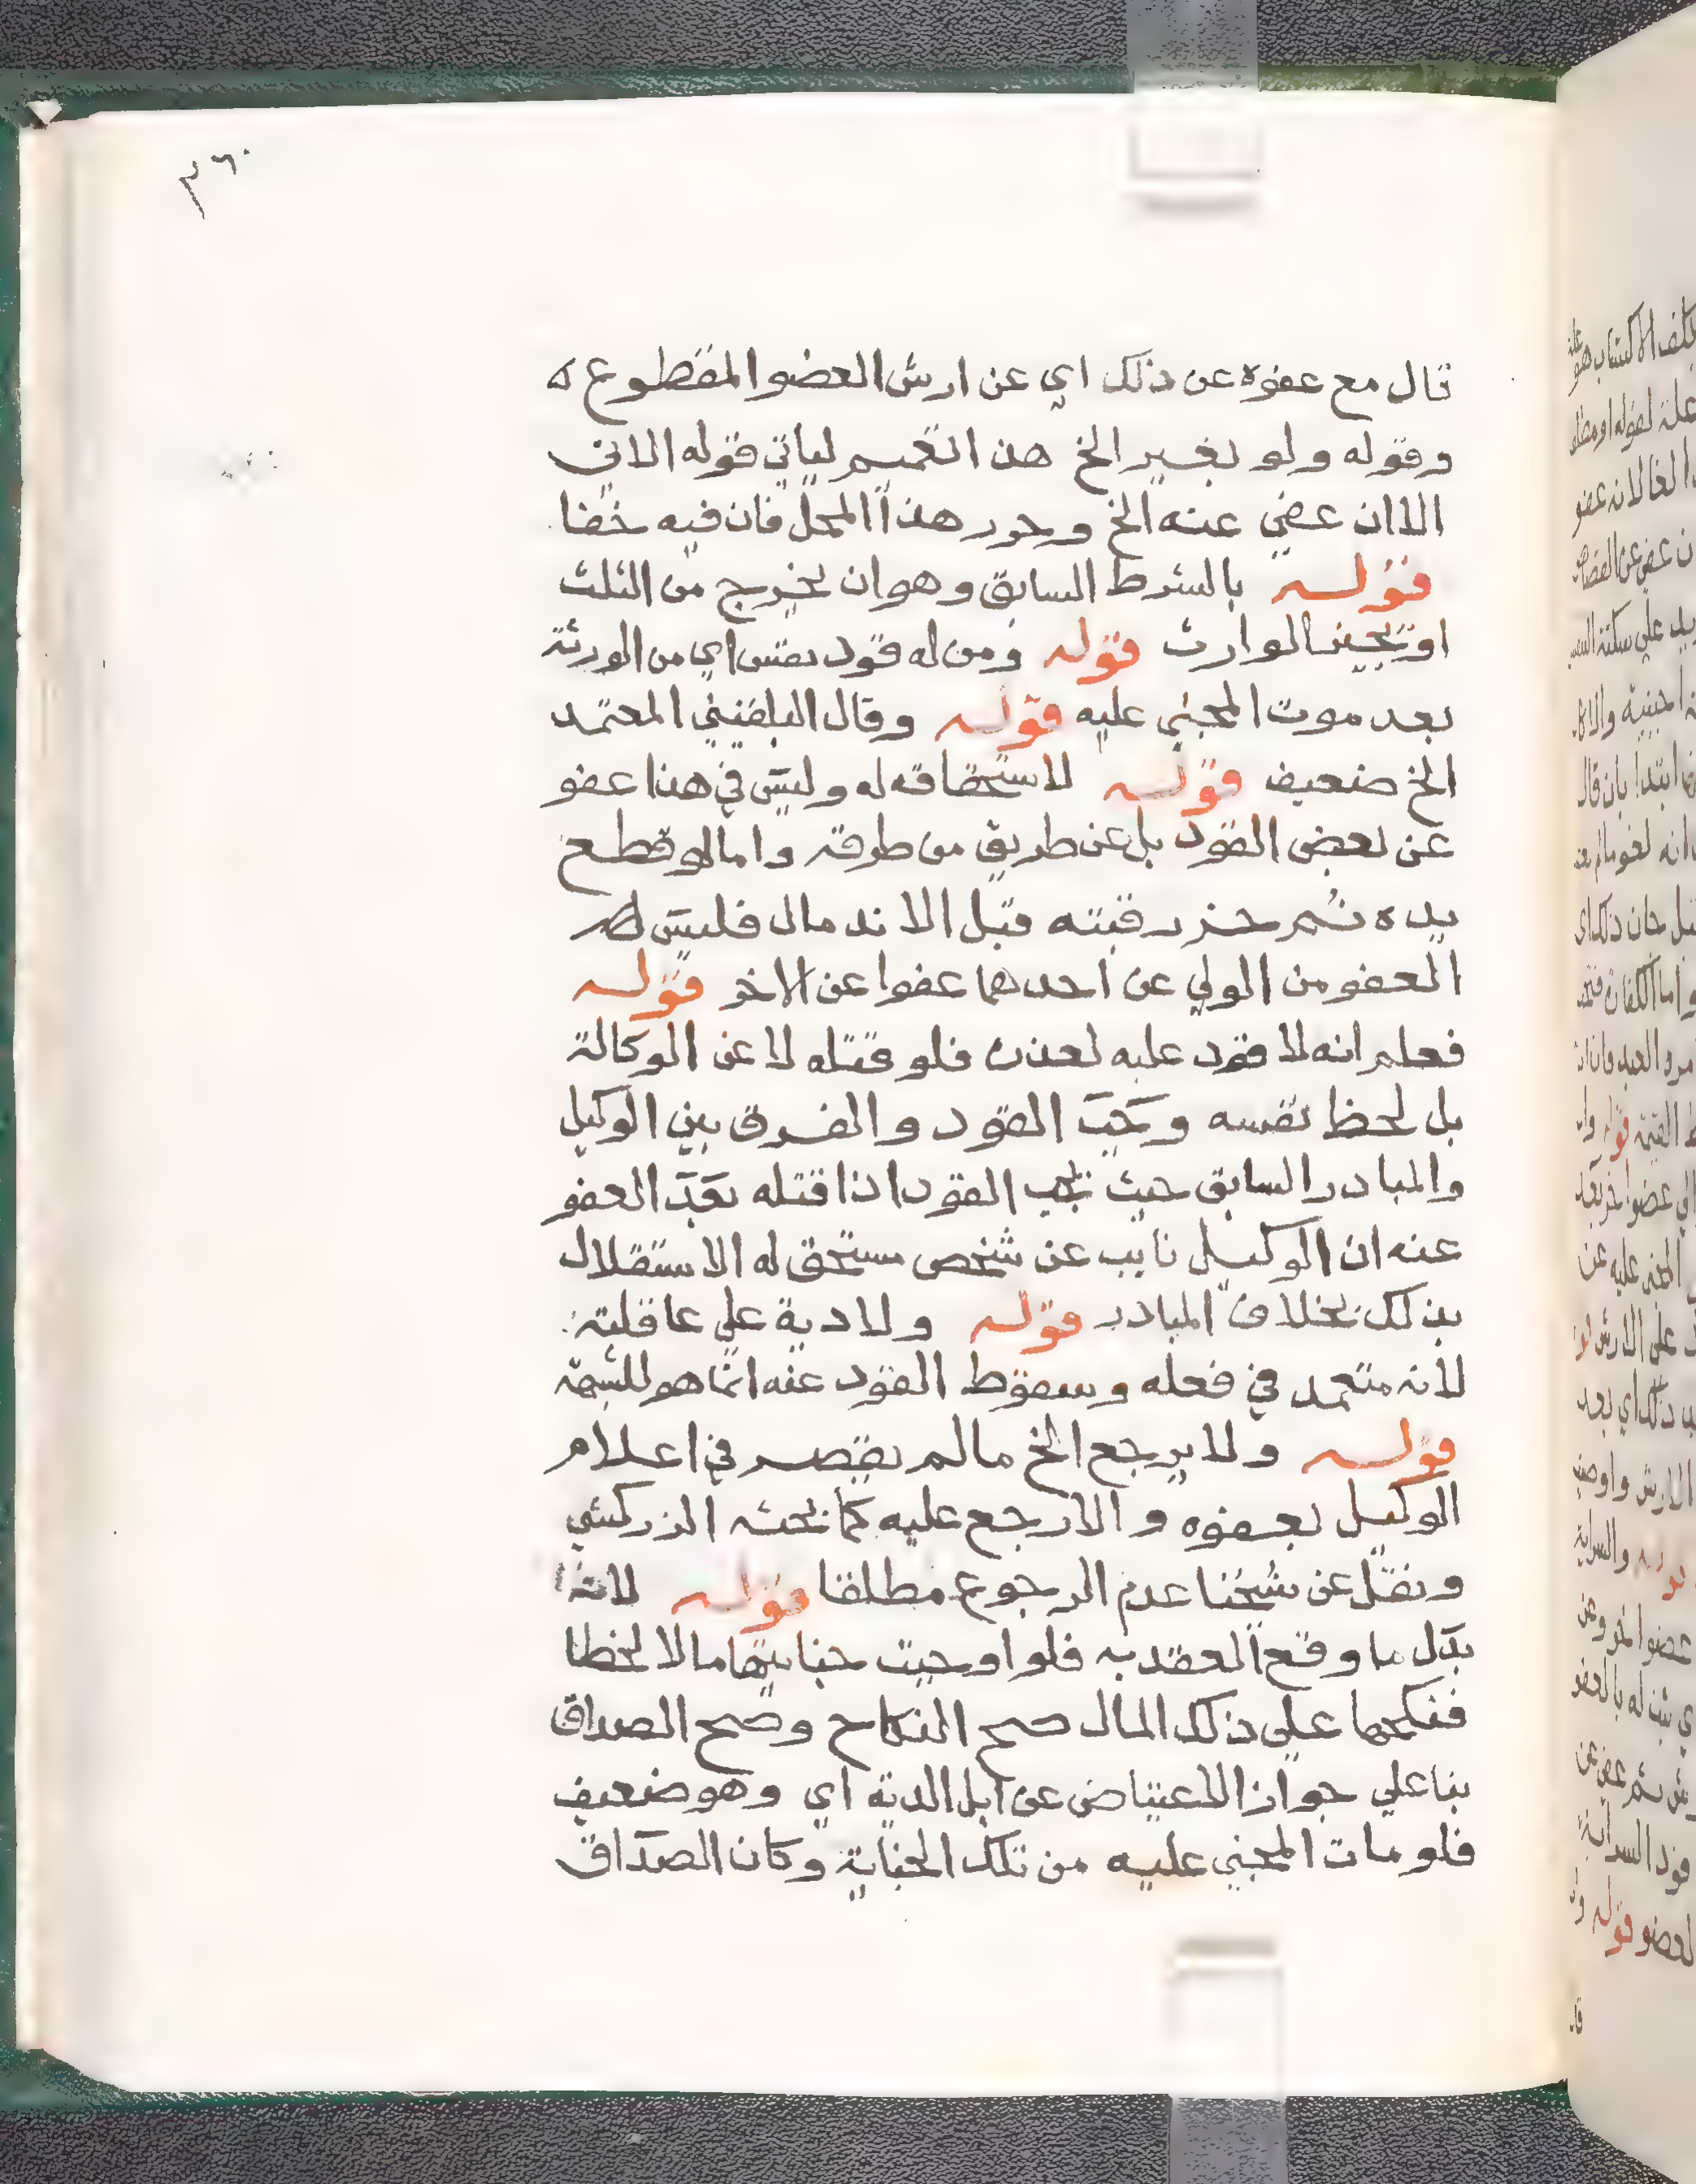 ٣٦٠
قال مع عفوه عن ذلك اي عن ارش العضو المقطوع ه
وقوله ولو بغير الخ هذا التعميم لياتي قوله الاتي
الا ان عفي عنه الخ وحرر هذا المحل فان فيه خفا
قوله بالشرط السابق وهو ان يخرج من الثلث
او تجيز الوارث قوله ومن له قود نفس اي من الورثة
بعد موت المجني عليه قوله وقال البلقيني المعتمد
الخ ضعيف قوله لاستحقاقه له وليس في هذا عفو
عن بعض القود بل عن طريق من طرقه واما لو قطع
يده ثم حز رقبته قبل الاندمال فليس له
العفو من الولي عن احدهما عفوا عن الاخر قوله
فعلم انه لا قود عليه لعذره فلو قتله لا عن الوكالة
بل لحظ نفسه وجب القود والفرق بين الوكيل
والمبادر السابق حيث يجب القود اذا قتله بعد العفو
عنه ان الوكيل نايب عن شخص مستحق له الاستقلال
بذلك بخلاف المبادر قوله ولا دية علي عاقلته
لانه متعمد في فعله وسقوط القود عنه انما هو للشبهة
قوله ولا يرجع الخ ما لم يقصر في اعلام
الوكيل بعفوه والا رجع عليه كما بحثه الزركشي
ونقل عن شيخنا عدم الرجوع مطلقا قوله لانه
بدل ما وقع العقد به فلو اوجبت جنايتها مالا لخطا
فنكحها علي ذلك المال صح النكاح وصح الصداق
بنا علي جواز الاعتياض عن ابل الدية اي وهو ضعيف
فلو مات المجني عليه من تلك الجناية وكان الصداق